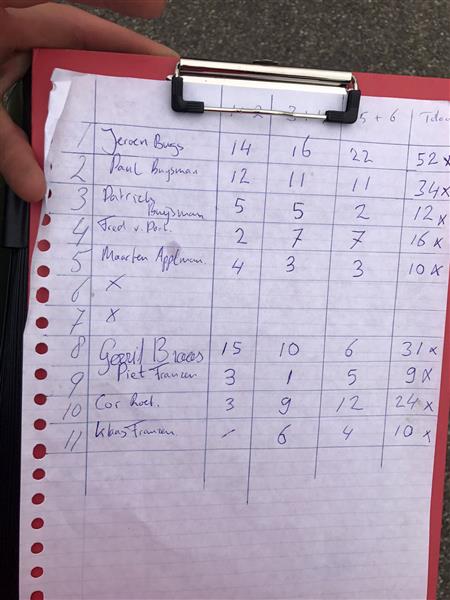 5 + 6
1 Jeroen Bugs 14 16 22 52 x
2 Paul Buysman 12 11 11 34 x
3 Patrick Buysman 5 5 2 12 x
4 Fred v. 2 7 7 16 x
5 Maarten Applman. 4 3 3 10 x
6 x
7 x
8 Gerrit 15 10 6 31 x
9 Piet Franzen 3 1 5 9 x
10 Cor 3 9 12 24 x
11 Klaas Franzen - 6 4 10 x